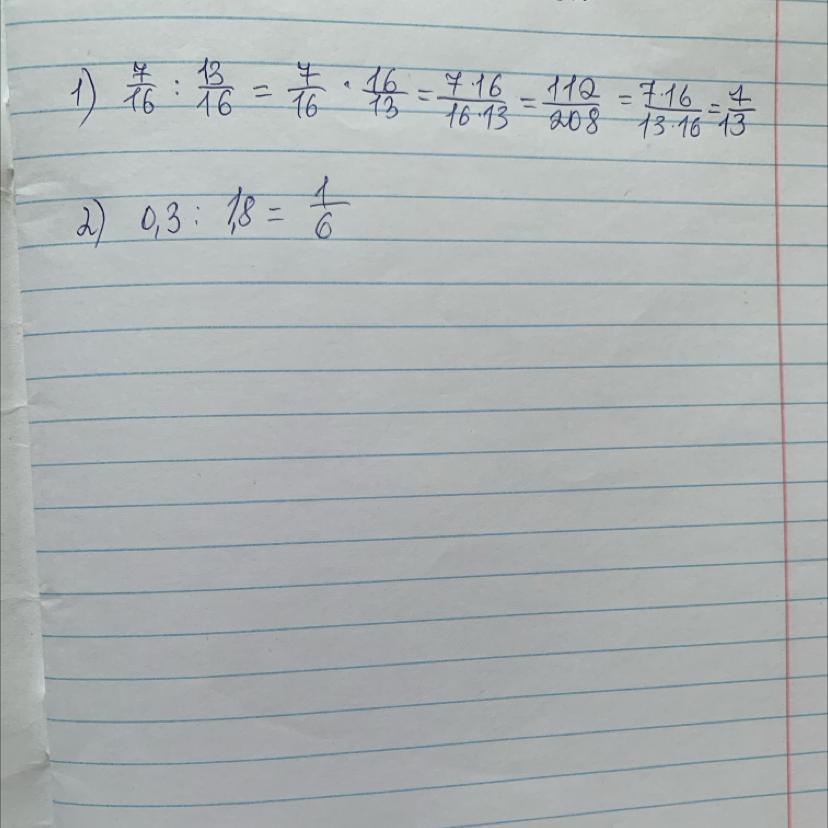 1) 7/16 : 13/16 = 7/16 · 16/13 = 7·16/16·13 = 112/208 = 7·16/13·16 = 7/13
2) 0,3 : 1,8 = 1/6